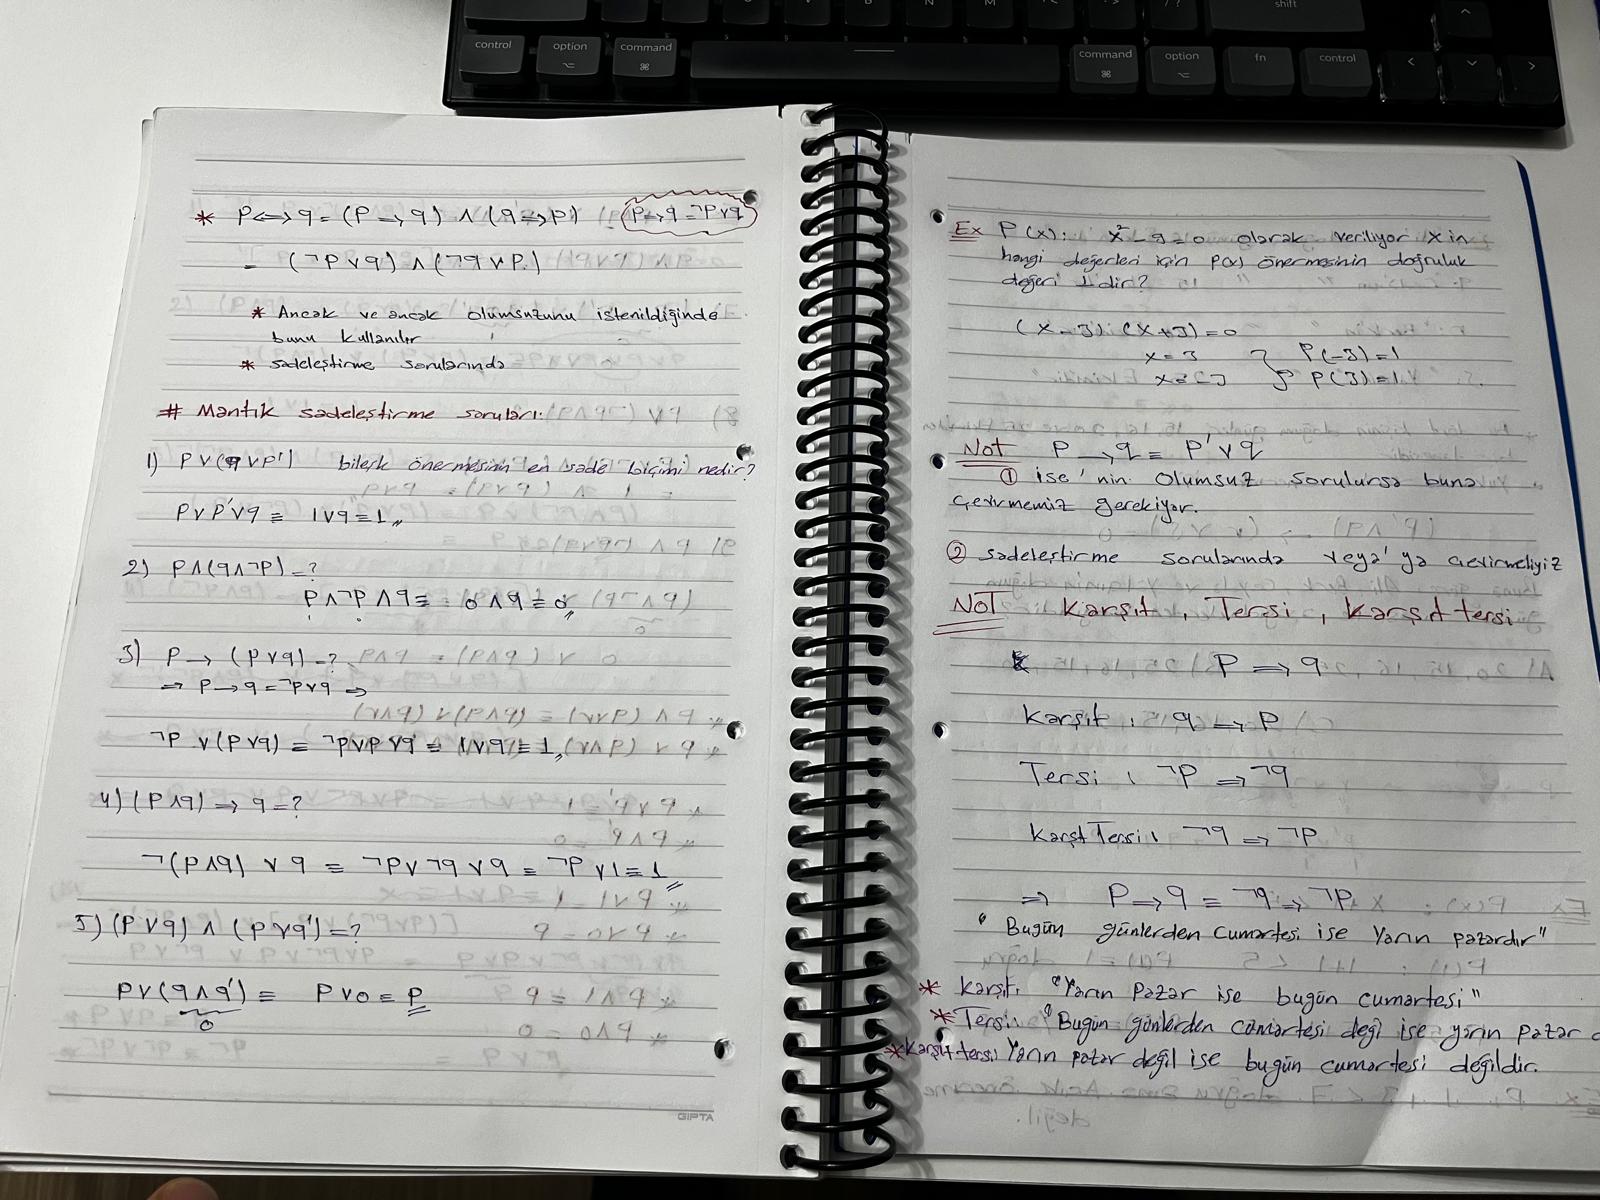 shift
control
option
command
command
option
fn
control
* P⟺q = (P→q) ∧ (q⇒p) P→q = ¬P∨q
= (¬P∨q) ∧ (¬q∨P)
* Ancak ve ancak olumsuzunu istenildiğinde
bunu kullanılır
* sadeleştirme sorularında
# Mantık sadeleştirme soruları:
1) P∨(q∨P') bileşk önermesinin en sade biçimi nedir?
P∨P'∨q ≡ 1∨q ≡ 1
2) P∧(q∧¬P) = ?
P∧¬P∧q ≡ 0∧q ≡ 0
3) P→(P∨q) = ?
⇒ P→q = ¬P∨q ⇒
¬P∨(P∨q) ≡ ¬P∨P∨q ≡ 1∨q ≡ 1
4) (P∧q)→q = ?
¬(P∧q)∨q ≡ ¬P∨¬q∨q ≡ ¬P∨1 ≡ 1
5) (P∨q) ∧ (P∨q') = ?
P∨(q∧q') ≡ P∨0 ≡ P
0
GIPTA
Ex P(x): x²-9=0 olarak veriliyor x in
hangi değerleri için P(x) önermesinin doğruluk
değeri 1 dir?
(x-3).(x+3)=0
x=3 } P(-3)=1
x=-3 P(3)=1
Not P→q ≡ P'∨q
① ise'nin olumsuz sorulursa buna
çevirmemiz gerekiyor.
② sadeleştirme sorularında veya'ya çevirmeliyiz
NOT Karşıt, Tersi, karşıt tersi
P⇒q
Karşıt: q⇒P
Tersi: ¬P⇒¬q
Karşt Tersi: ¬q⇒¬P
⇒ P→q ≡ ¬q→¬P
"Bugün günlerden cumartesi ise Yarın pazardır"
* Karşıt: "Yarın Pazar ise bugün cumartesi"
* Tersi: "Bugün günlerden cumartesi değil ise yarın pazar
* Karşıt tersi: Yarın pazar değil ise bugün cumartesi değildir.